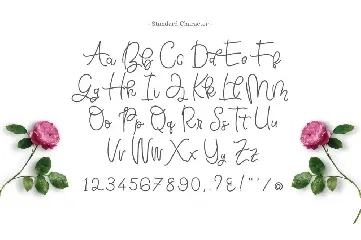 - Standard Character -
Aa Bb Cc Dd Ee Ff
Gg Hh Ii Jj Kk Ll Mm
Oo Pp Qq Rr Ss Tt Uu
Vv Ww Xx Yy Zz
1234567890,.?&!"'/@